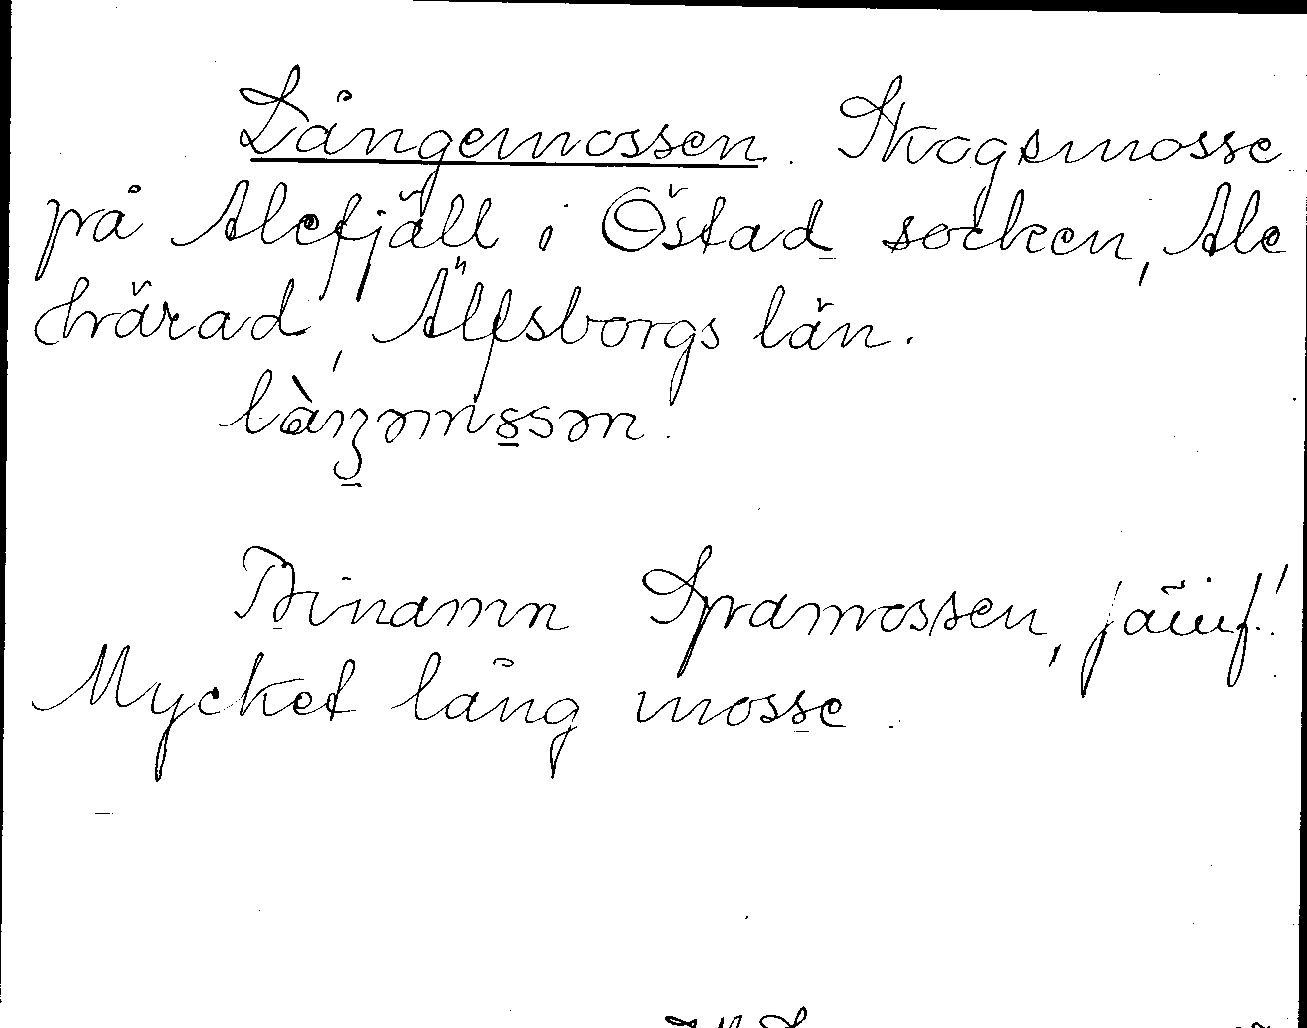 Långemossen. Skogsmosse
på Alefjäll i Östad socken, Ale
härad, Älfsborgs län.
Binamn Spramossen, jämf!
Mycket lång mosse.